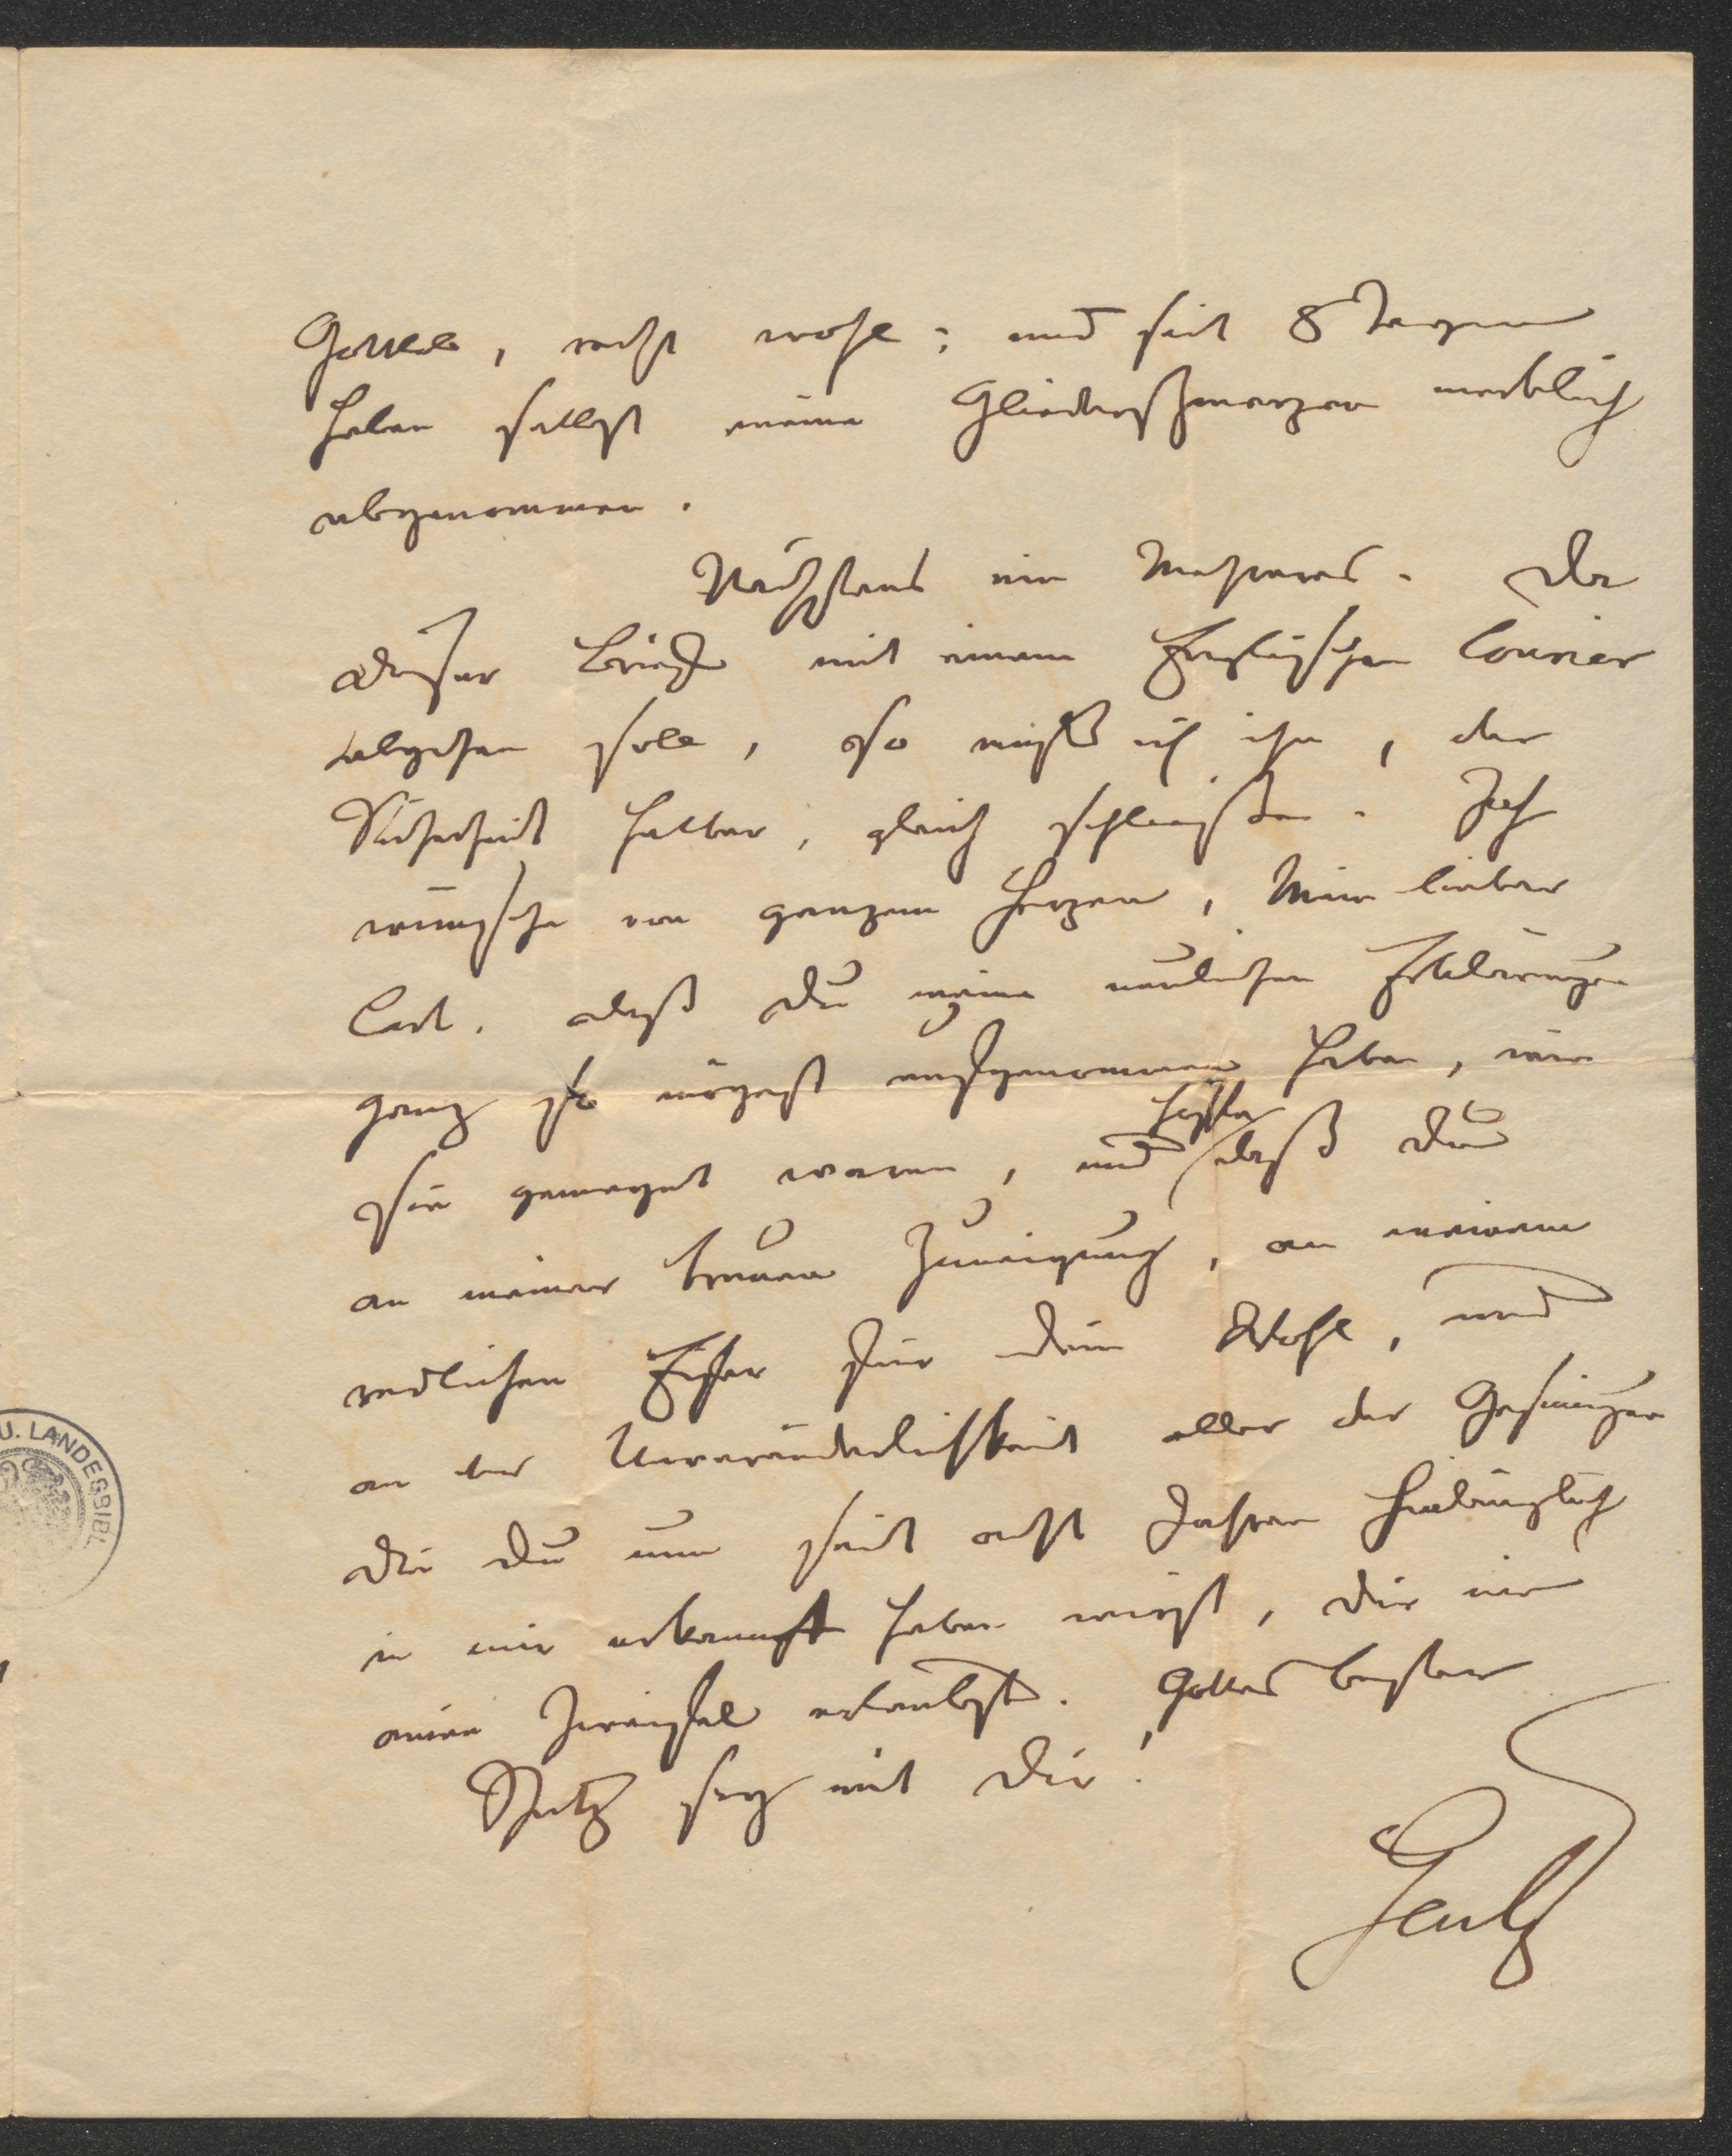 Gottlob, recht wohl; und seit 8 Tagen
haben selbst meine Gliederschmerzen merklich
abgenommen.
Nächstens ein Mehreres. Da
dieser Brief mit einem Englischen Courier
abgehen soll, so muß ich ihn, der
Sicherheit halber, gleich schließen. Ich
wünsche von ganzem Herzen, Mein lieber
Carl, daß Du meine neulichen Erklärungen
ganz so mögest aufgenommen haben, wie
sie gemeynt waren, und hoffe daß Du
an meiner treuen Zuneigung, an meinem
redlichen Eifer für Dein Wohl, und
an der Unveränderlichkeit aller der Gesinnungen
die Du nun seit acht Jahren hinlänglich
in mir erkannt haben wirst, Dir nie
einen Zweifel erlaubst. Gottes bester
Schutz sey mit Dir!
Gentz
U. LANDESBIBL